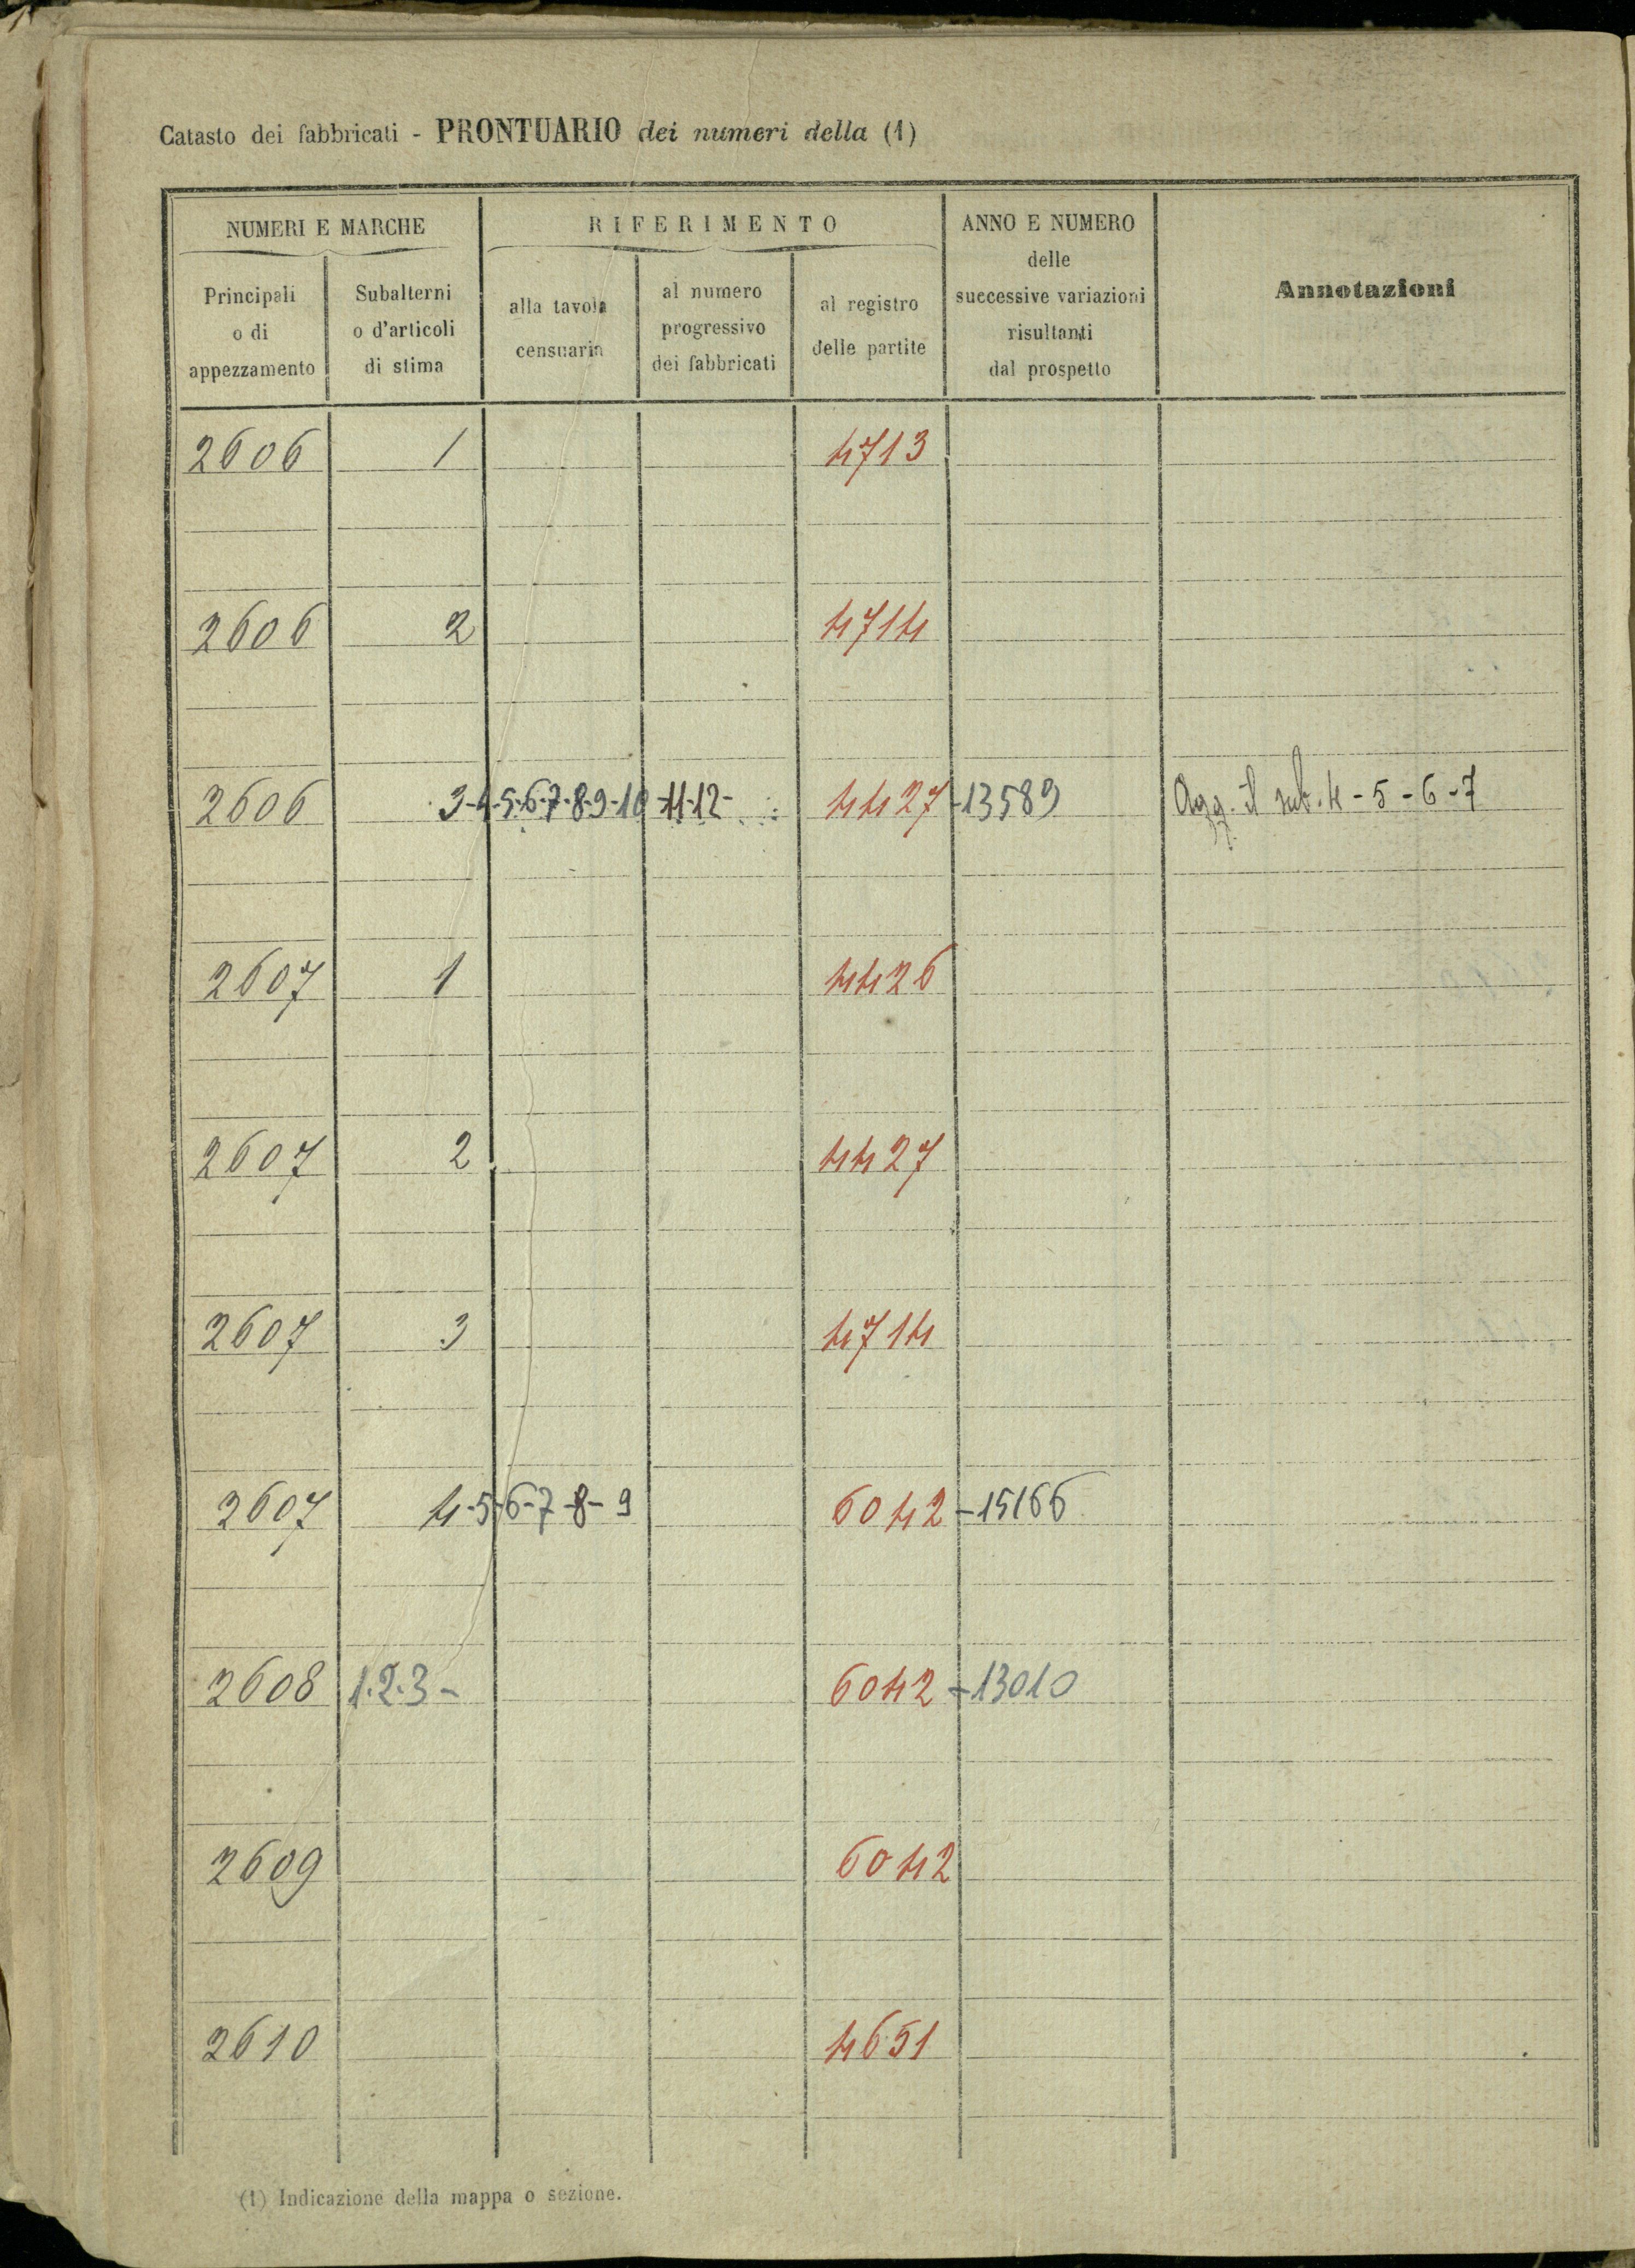 Catasto dei fabbricati - PRONTUARIO dei numeri della (1)
NUMERI E MARCHE
RIFERIMENTO
ANNO E NUMERO
delle
successive variazioni
risultanti
dal prospetto
Annotazioni
Principali
o di
appezzamento
Subalterni
o d'articoli
di stima
alla tavola
censuaria
al numero
progressivo
dei fabbricati
al registro
delle partite
2606 1 4713
2606 2 4714
2606 3-4-5-6-7-8-9-10-11-12- 4427-13589 Agg. il sub. 4-5-6-7
2607 1 4426
2607 2 4427
2607 3 4714
2607 4-5-6-7-8-9 6042-15166
2608 1.2.3- 6042-13010
2609 6042
2610 4651
(1) Indicazione della mappa o sezione.